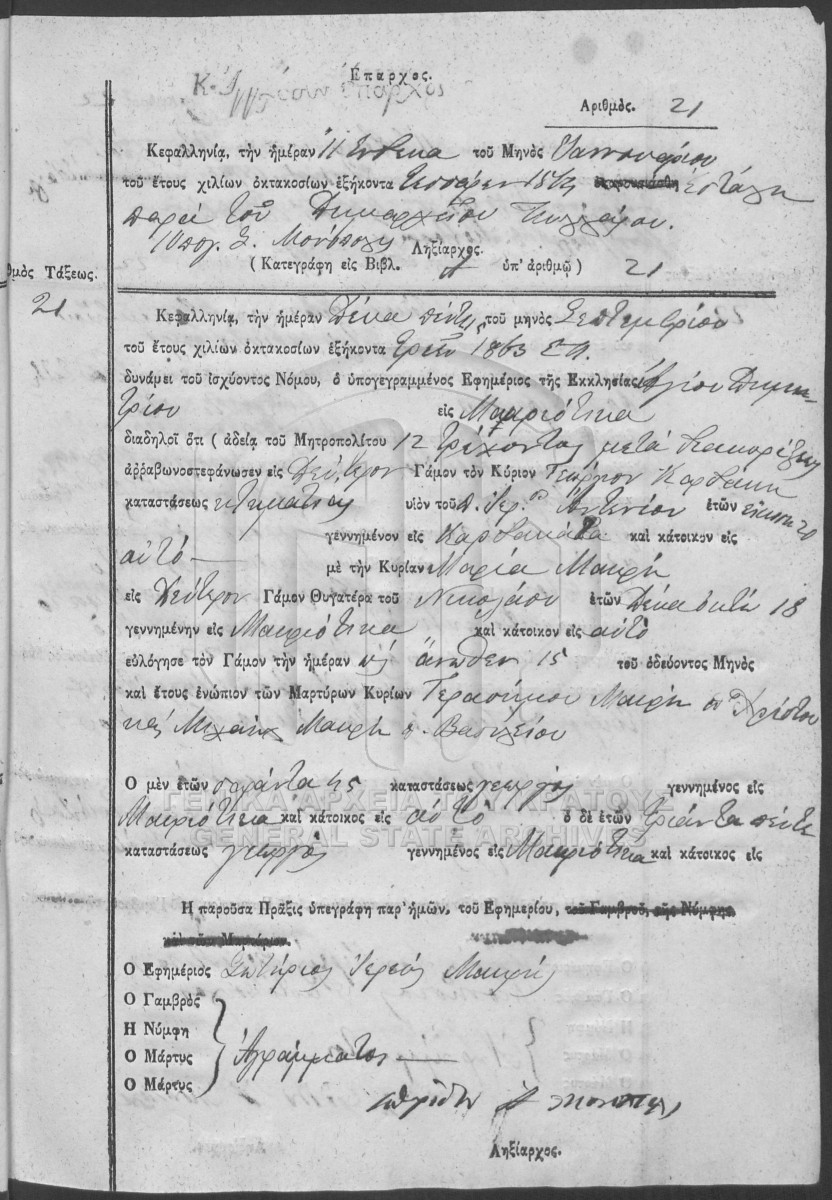 Ἔπαρχος.
Ἀριθμὸς. 21
Κεφαλληνία, τὴν ἡμέραν 11 Ἕνδεκα τοῦ Μηνὸς Ἰαννουαρίου
τοῦ ἔτους χιλίων ὀκτακοσίων ἑξήκοντα τεσσάρων 1864 Ἐστάλη
παρὰ τοῦ Δημαρχείου Πυλλάρου.
Ληξίαρχος.
(Κατεγράφη εἰς Βιβλ. Α ὑπ' ἀριθμῷ) 21
θμὸς Τάξεως.
21
Κεφαλληνία, τὴν ἡμέραν Δέκα πέντε τοῦ μηνὸς Σεπτεμβρίου
τοῦ ἔτους χιλίων ὀκτακοσίων ἑξήκοντα τρία 1863 Ε.Π.
δυνάμει τοῦ ἰσχύοντος Νόμου, ὁ ὑπογεγραμμένος Ἐφημέριος τῆς Ἐκκλησίας Ἁγίου Δημη-
τρίου εἰς Μακριότικα
διαδηλοῖ ὅτι (ἀδείᾳ τοῦ Μητροπολίτου 12 τρέχοντος μετὰ
ἀρραβωνοστεφάνωσεν εἰς Δεύτερον Γάμον τὸν Κύριον Γεώργιον Καρδακη
καταστάσεως κτηματίας υἱὸν τοῦ Π. Ἱερ. Ἀντωνίου ἐτῶν εἴκοσι 20
γεννημένον εἰς Καρδακάτα καὶ κάτοικον εἰς
αὐτὸ — μὲ τὴν Κυρίαν Μαρία Μακρῆ
εἰς Δεύτερον Γάμον Θυγατέρα τοῦ Νικολάου ἐτῶν Δέκα ὀκτώ 18
γεννημένην εἰς Μακριότικα καὶ κάτοικον εἰς αὐτὸ
εὐλόγησε τὸν Γάμον τὴν ἡμέραν ὡς ἄνωθεν 15 τοῦ ὁδεύοντος Μηνὸς
καὶ ἔτους ἐνώπιον τῶν Μαρτύρων Κυρίων Γερασίμου Μακρῆ π. Χρίστου
καὶ Μιχαὴλ Μακρῆ π. Βασιλείου
Ὁ μὲν ἐτῶν σαράντα 45 καταστάσεως γεωργὸς γεννημένος εἰς
Μακριότικα καὶ κάτοικος εἰς αὐτὸ ὁ δὲ ἐτῶν τριάντα πέντε
καταστάσεως γεωργὸς γεννημένος εἰς Μακριότικα καὶ κάτοικος εἰς
ΓΕΝΙΚΑ ΑΡΧΕΙΑ ΤΟΥ ΚΡΑΤΟΥΣ
GENERAL STATE ARCHIVES
Ἡ παροῦσα Πρᾶξις ὑπεγράφη παρ' ἡμῶν, τοῦ Ἐφημερίου, τοῦ Γαμβροῦ, τῆς Νύμφης
καὶ τῶν Μαρτύρων.
Ὁ Ἐφημέριος Σωτήριος Ἱερεὺς Μακρῆς
Ὁ Γαμβρὸς
Ἡ Νύμφη
Ὁ Μάρτυς Ἀγράμματοι —
Ὁ Μάρτυς
Ληξίαρχος.